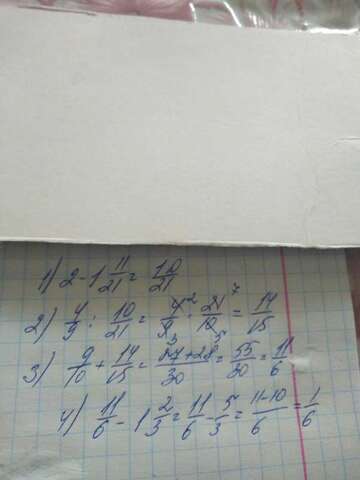 1) 2 - 1 11/21 = 10/21
2) 4/9 : 10/21 = 4²/9₃ · 21⁷/10₅ = 14/15
3) 9/10 + 14/15 = 27+28/30 = 55/30 = 11/6
4) 11/6 - 1 2/3 = 11/6 - 5/3 = 11-10/6 = 1/6